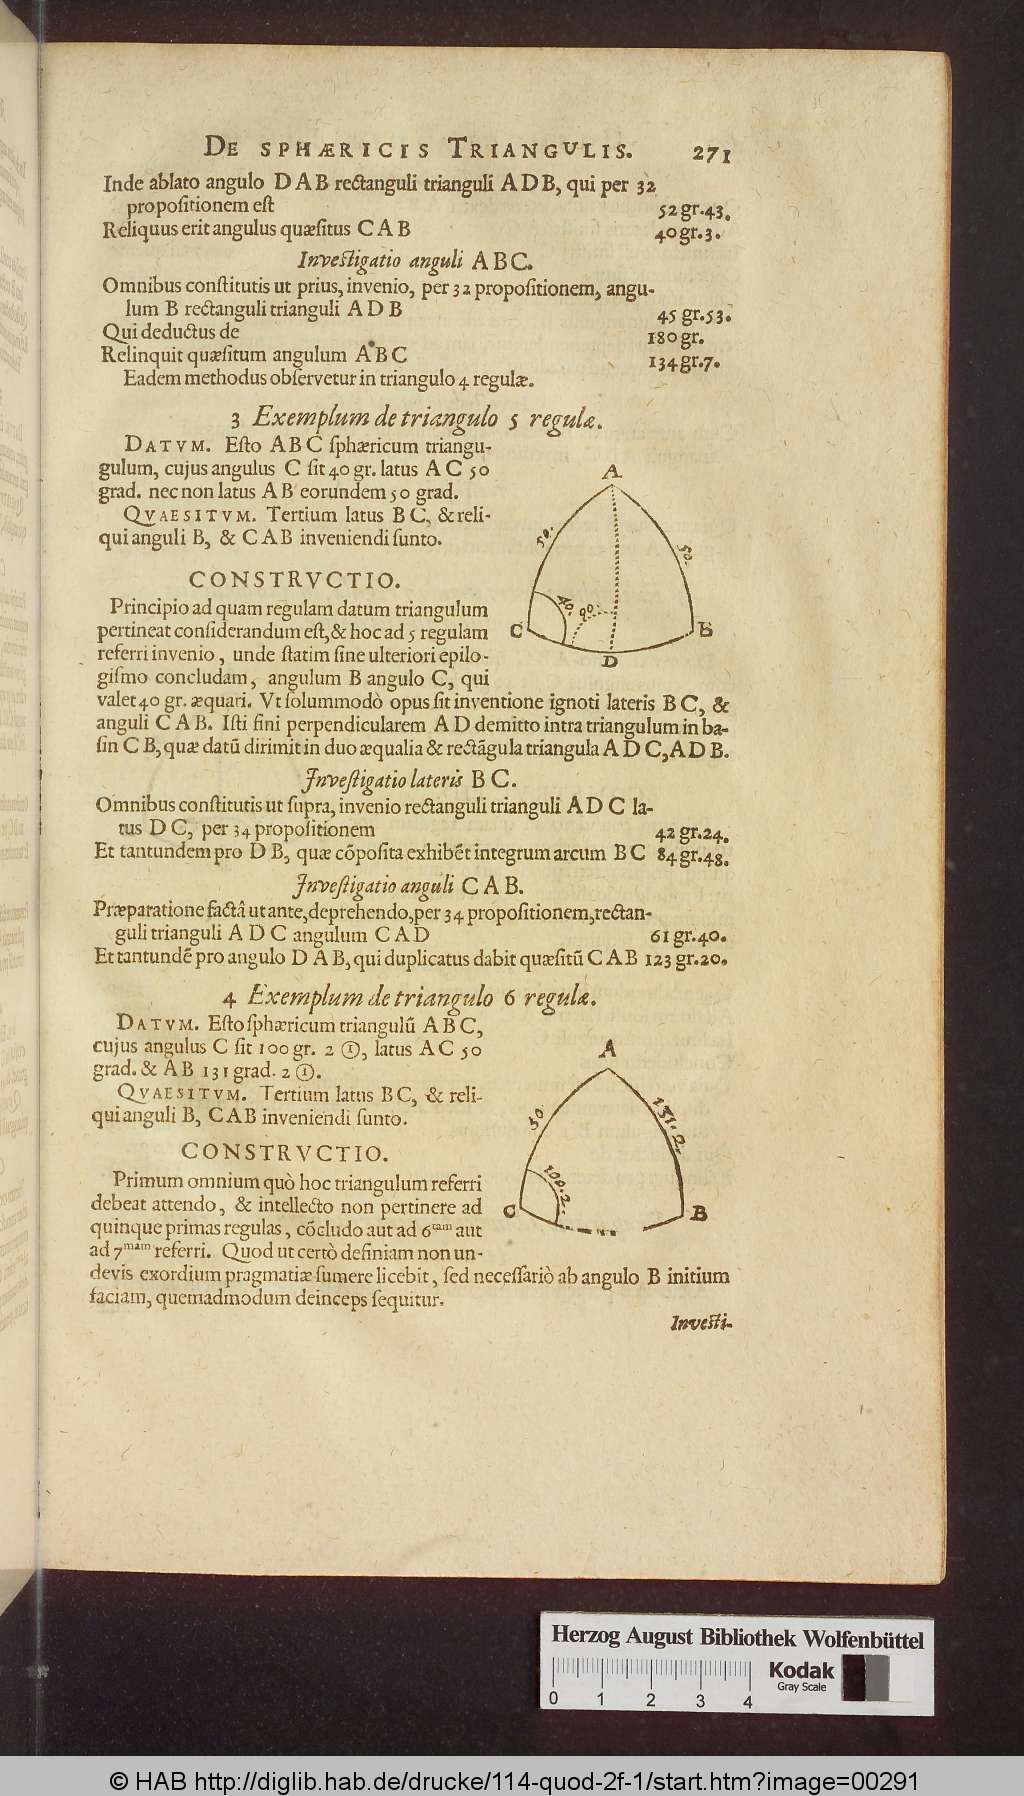 DE SPHÆRICIS TRIANGULIS. 271
Inde ablato angulo D A B rectanguli trianguli A D B, qui per 32
propositionem est 52 gr. 43.
Reliquus erit angulus quæsitus C A B 40 gr. 3.
Investigatio anguli A B C.
Omnibus constitutis ut prius, invenio, per 32 propositionem, angu-
lum B rectanguli trianguli A D B 45 gr. 53.
Qui deductus de 180 gr.
Relinquit quæsitum angulum A B C 134 gr. 7.
Eadem methodus observetur in triangulo 4 regulæ.
3 Exemplum de triangulo 5 regulæ.
DATVM. Esto A B C sphæricum triangu-
gulum, cujus angulus C sit 40 gr. latus A C 50
grad. nec non latus A B eorundem 50 grad.
QVAESITVM. Tertium latus B C, & reli-
qui anguli B, & C A B inveniendi sunto.
CONSTRVCTIO.
Principio ad quam regulam datum triangulum
pertineat considerandum est, & hoc ad 5 regulam
referri invenio, unde statim sine ulteriori epilo-
gismo concludam, angulum B angulo C, qui
valet 40 gr. æquari. Vt solummodò opus sit inventione ignoti lateris B C, &
anguli C A B. Isti fini perpendicularem A D demitto intra triangulum in ba-
sin C B, quæ datū dirimit in duo æqualia & rectāgula triangula A D C, A D B.
A
50.
50.
40.
90.
C
B
D
Investigatio lateris B C.
Omnibus constitutis ut supra, invenio rectanguli trianguli A D C la-
tus D C, per 34 propositionem 42 gr. 24.
Et tantundem pro D B, quæ cōposita exhibēt integrum arcum B C 84 gr. 48.
Investigatio anguli C A B.
Præparatione factâ ut ante, deprehendo, per 34 propositionem, rectan-
guli trianguli A D C angulum C A D 61 gr. 40.
Et tantundē pro angulo D A B, qui duplicatus dabit quæsitū C A B 123 gr. 20.
4 Exemplum de triangulo 6 regulæ.
DATVM. Esto sphæricum triangulū A B C,
cujus angulus C sit 100 gr. 2 ①, latus A C 50
grad. & A B 131 grad. 2 ①.
QVAESITVM. Tertium latus B C, & reli-
qui anguli B, C A B inveniendi sunto.
CONSTRVCTIO.
Primum omnium quò hoc triangulum referri
debeat attendo, & intellecto non pertinere ad
quinque primas regulas, cōcludo aut ad 6tam aut
ad 7mam referri. Quod ut certò definiam non un-
devis exordium pragmatiæ sumere licebit, sed necessariò ab angulo B initium
faciam, quemadmodum deinceps sequitur.
A
50.
131. 2.
100. 2.
C
B
Investi-
Herzog August Bibliothek Wolfenbüttel
Kodak
Gray Scale
0 1 2 3 4
© HAB http://diglib.hab.de/drucke/114-quod-2f-1/start.htm?image=00291